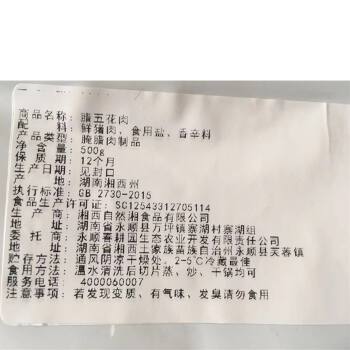 商品名称：腊五花肉
配料：鲜猪肉，食用盐，香辛料
产品类型：腌腊肉制品
净含量：500g
保质期：12个月
生产日期：见封口
产地：湖南湘西州
执行标准：GB 2730-2015
食品生产许可证：SC12543312705114
生产商：湘西自然湘食品有限公司
地址：湖南省永顺县万坪镇寨湖村寨湖组
委托商：永顺喜耕园生态农业开发有限公司
地址：湖南省湘西土家族苗族自治州永顺县芙蓉镇
贮存方法：通风阴凉干燥处，2-5℃冷藏最佳
食用方法：温水清洗后切片蒸，炒，干锅均可
服务电话：4000060007
注意事项：若发现变质，有气味，发臭请勿食用